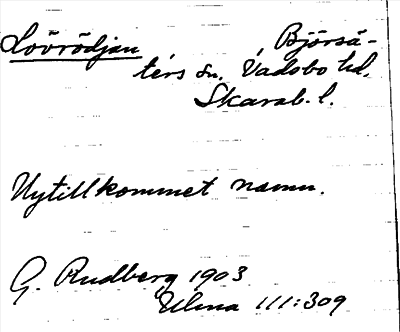 Lövrödjan Björsä-
ters sn. Vadsbo hd.
Skarab. l.
Nytillkommet namn.
G. Rudberg 1903
Ulma 111:309